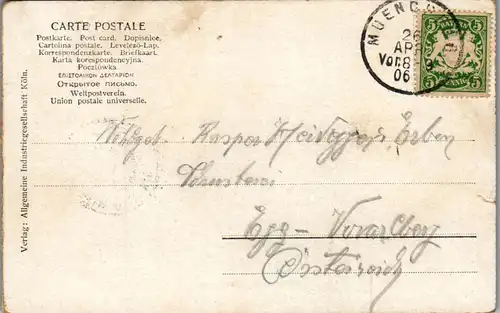 CARTE POSTALE
Postkarte. Post card. Dopisnice.
Cartolina postale. Levelező-Lap.
Korrespondenzkarte. Briefkaart.
Karta korespondencyjna.
Pocztówka.
ΕΠΙΣΤΟΛΙΚΟΝ ΔΕΛΤΑΡΙΟΝ
Открытое письмо.
Weltpostverein.
Union postale universelle.
Verlag: Allgemeine Industriegesellschaft Köln.
MUENCH
26
APR
Vor. 8
06
BAYERN
5 5
5 5
Kaspar Erben
Egg - Vorarlberg
Österreich